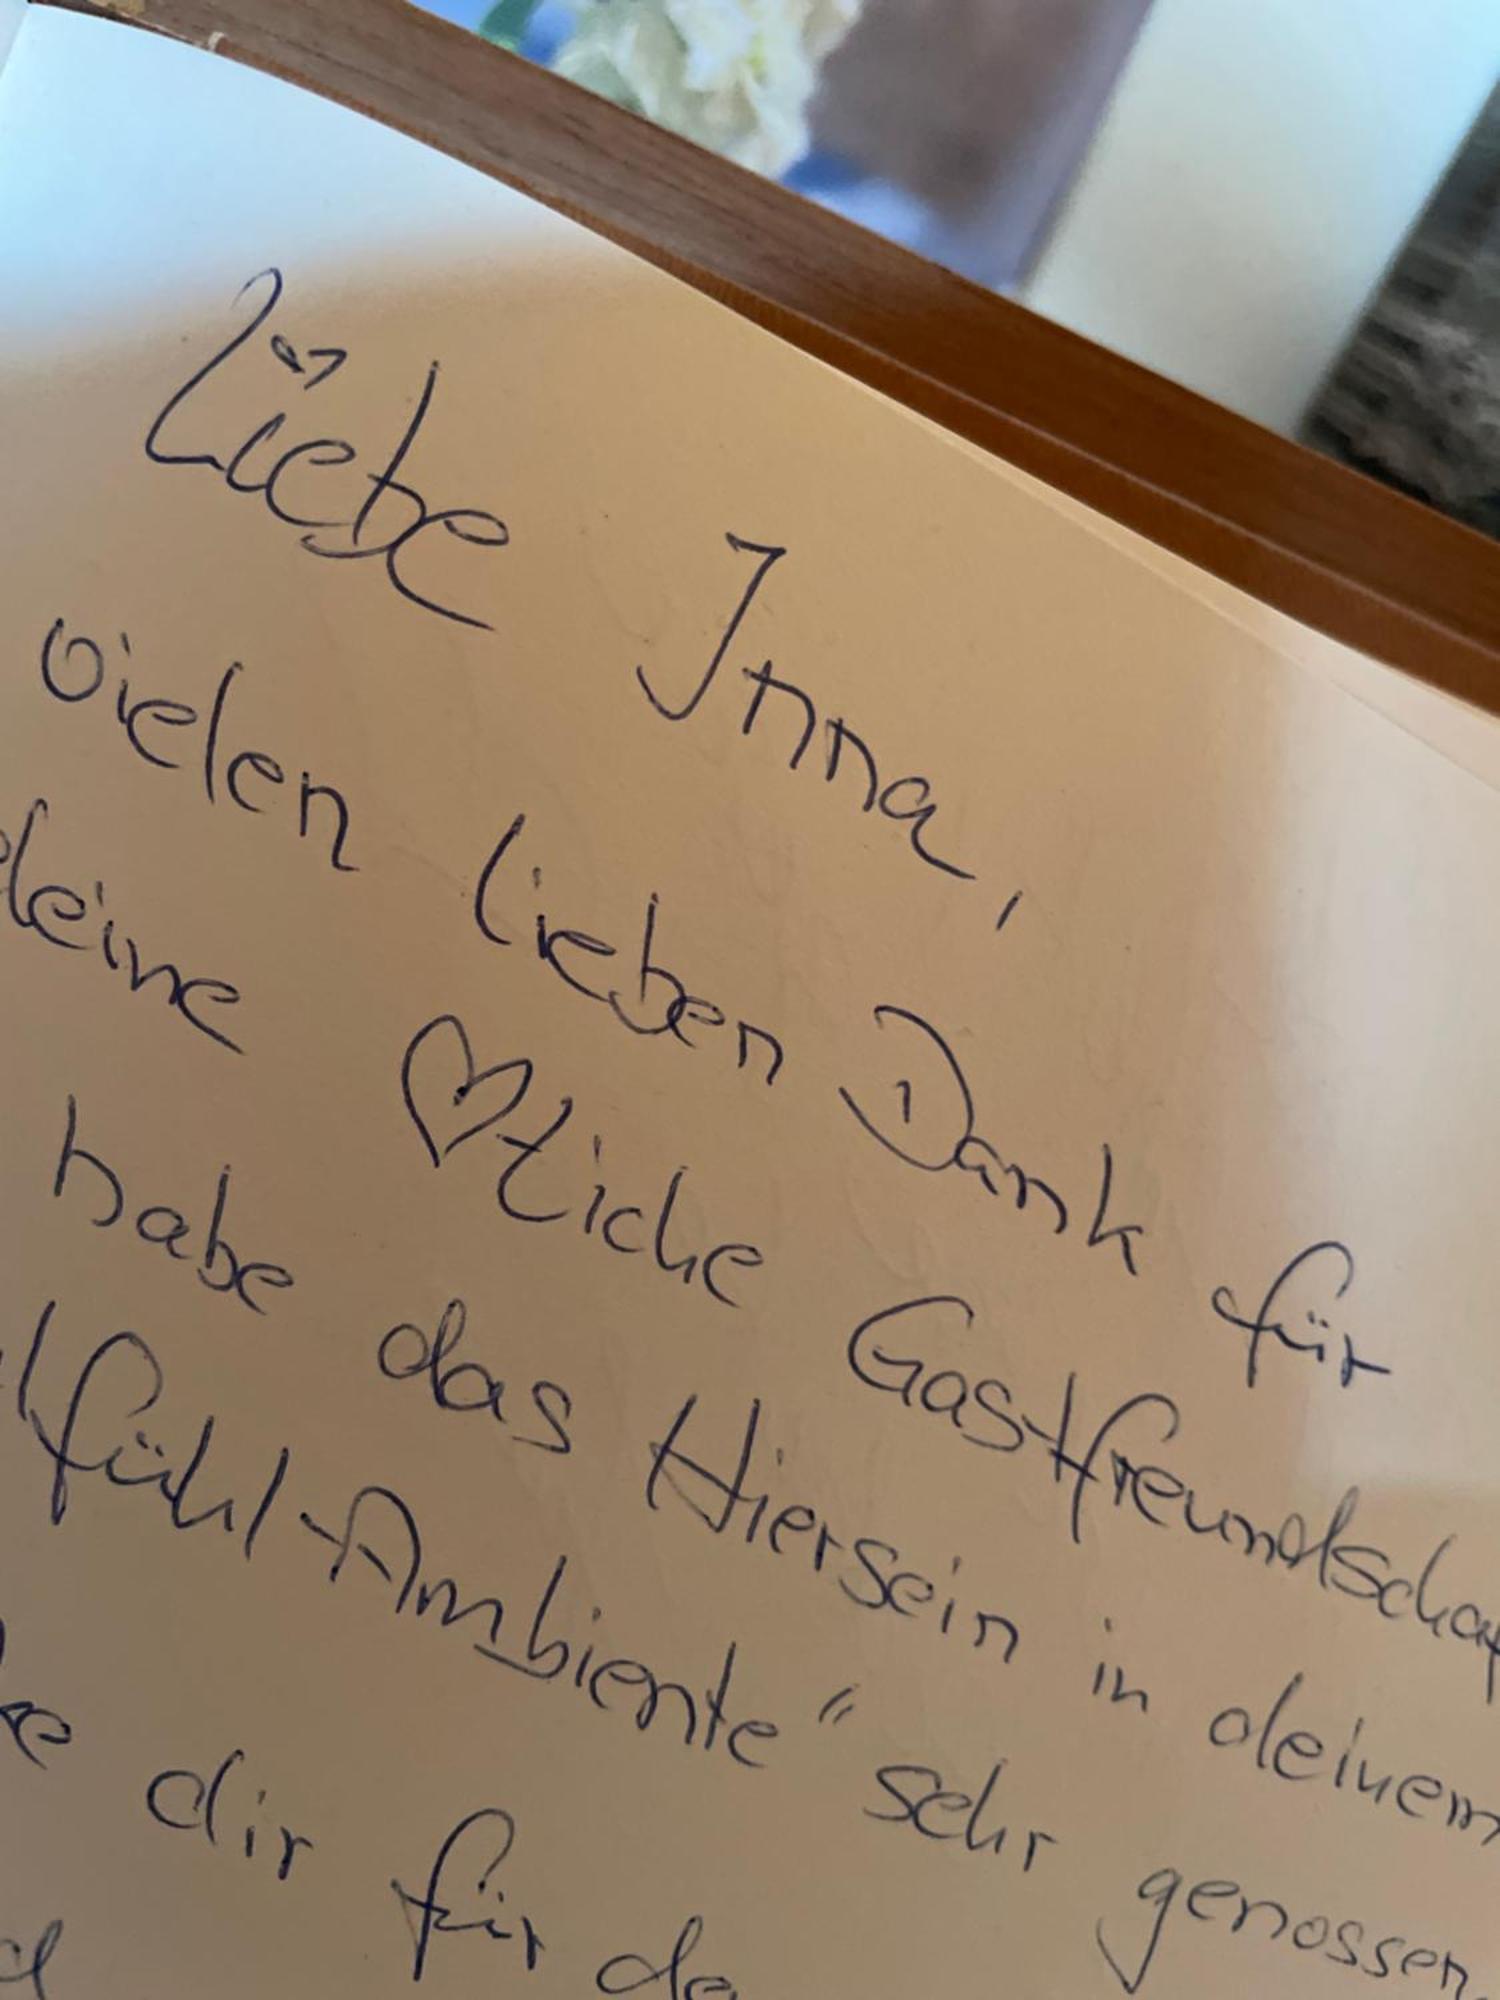 Liebe Inna,
vielen lieben Dank für
deine ♡liche Gastfreundschaf
habe das Hiersein in deinem
lfühl-Ambiente" sehr genossen
dir für de